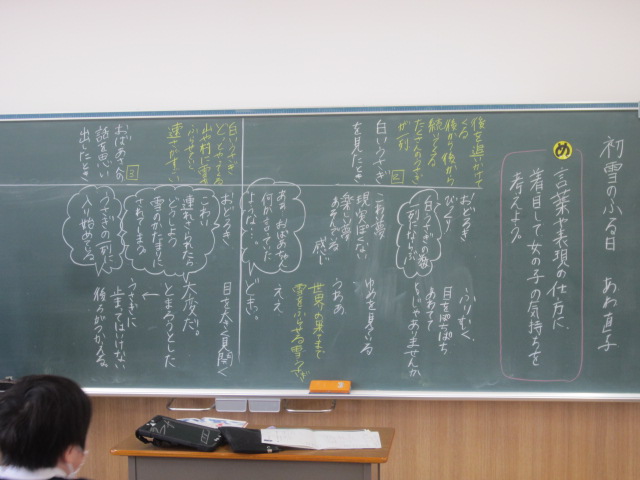 初雪のふる日 あわ直子
め
言葉や表現の仕方に
着目して女の子の気持ちを
考えよう
後を追いかけて
くる
後から後から
続いてくる
たくさんのうさぎ
が列
二
白いうさぎ
を見たとき
おどろき
びっくり
白うさぎの数
一列になって
こわい夢
現実っぽくない
楽しい夢
ふりむく
目をぱちぱち
あわてて
じゃありませんか
ゆめを見ている
うわあ
世界の果てまで
雪をふらせる雪うさぎ
ええ
どきっ
ああ、おばあちゃん
何か言ってた
ような…。
白いうさぎ
どいどやってくる
山や村に雪を
ふらせていく
連さがすすい
三
おばあさんの
話を思い
出したとき
おどろき
こわい
連れさられたら
どうしよう
雪のかたまりに
されてしまう
うさぎの一列に
入り始めてる
目を大きく見開く
大変だ。
とまろうとした
うさぎに
止まってはいけない
後ろがつかえる。